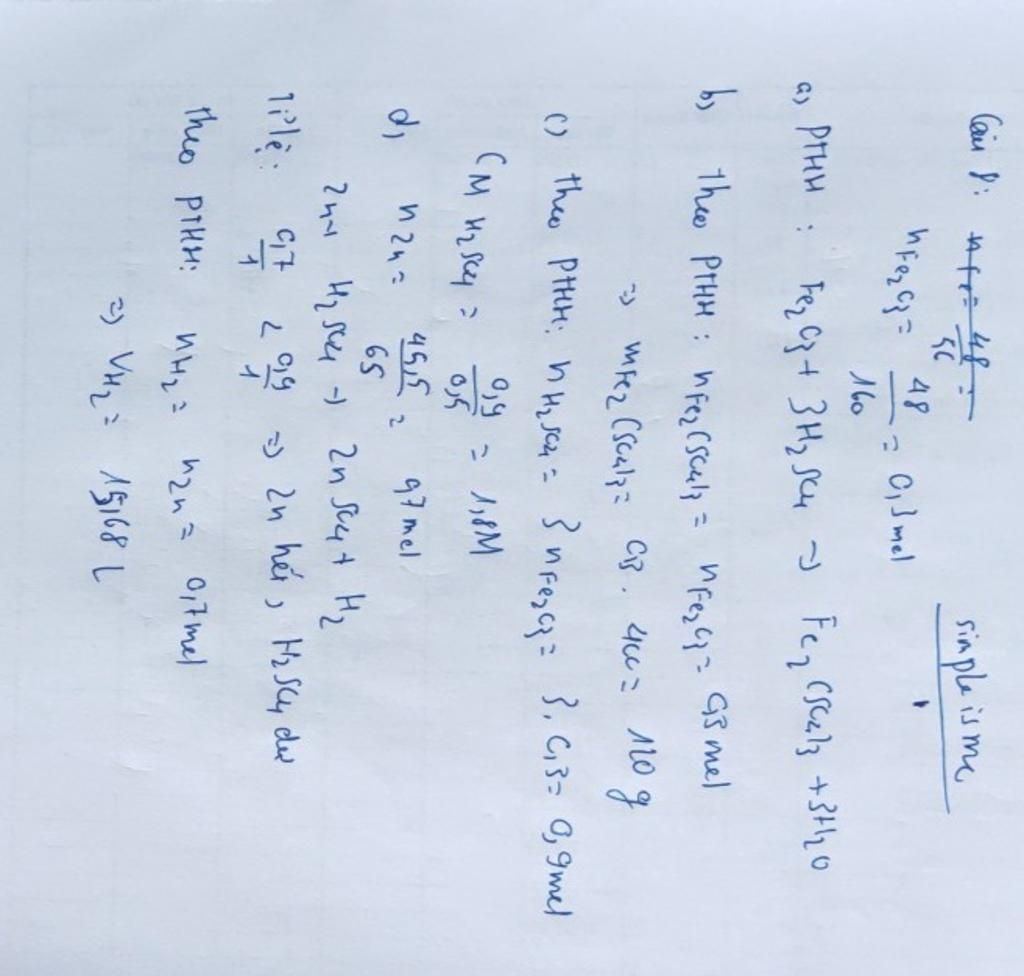 Câu 8: n Fe = 48/56 =
simpleisme
nFe2O3 = 48/160 = 0,3 mol
a) PTHH : Fe2O3 + 3H2SO4 → Fe2(SO4)3 + 3H2O
b) Theo PTHH : nFe2(SO4)3 = nFe2O3 = 0,3 mol
=> mFe2(SO4)3 = 0,3 . 400 = 120 g
c) Theo PTHH: nH2SO4 = 3 nFe2O3 = 3 . 0,3 = 0,9 mol
CM H2SO4 = 0,9/0,5 = 1,8M
d, nZn = 45,5/65 = 0,7 mol
Zn + H2SO4 → ZnSO4 + H2
Tỉ lệ: 0,7/1 < 0,9/1 => Zn hết, H2SO4 dư
Theo PTHH: nH2 = nZn = 0,7 mol
=> VH2 = 15,68 l